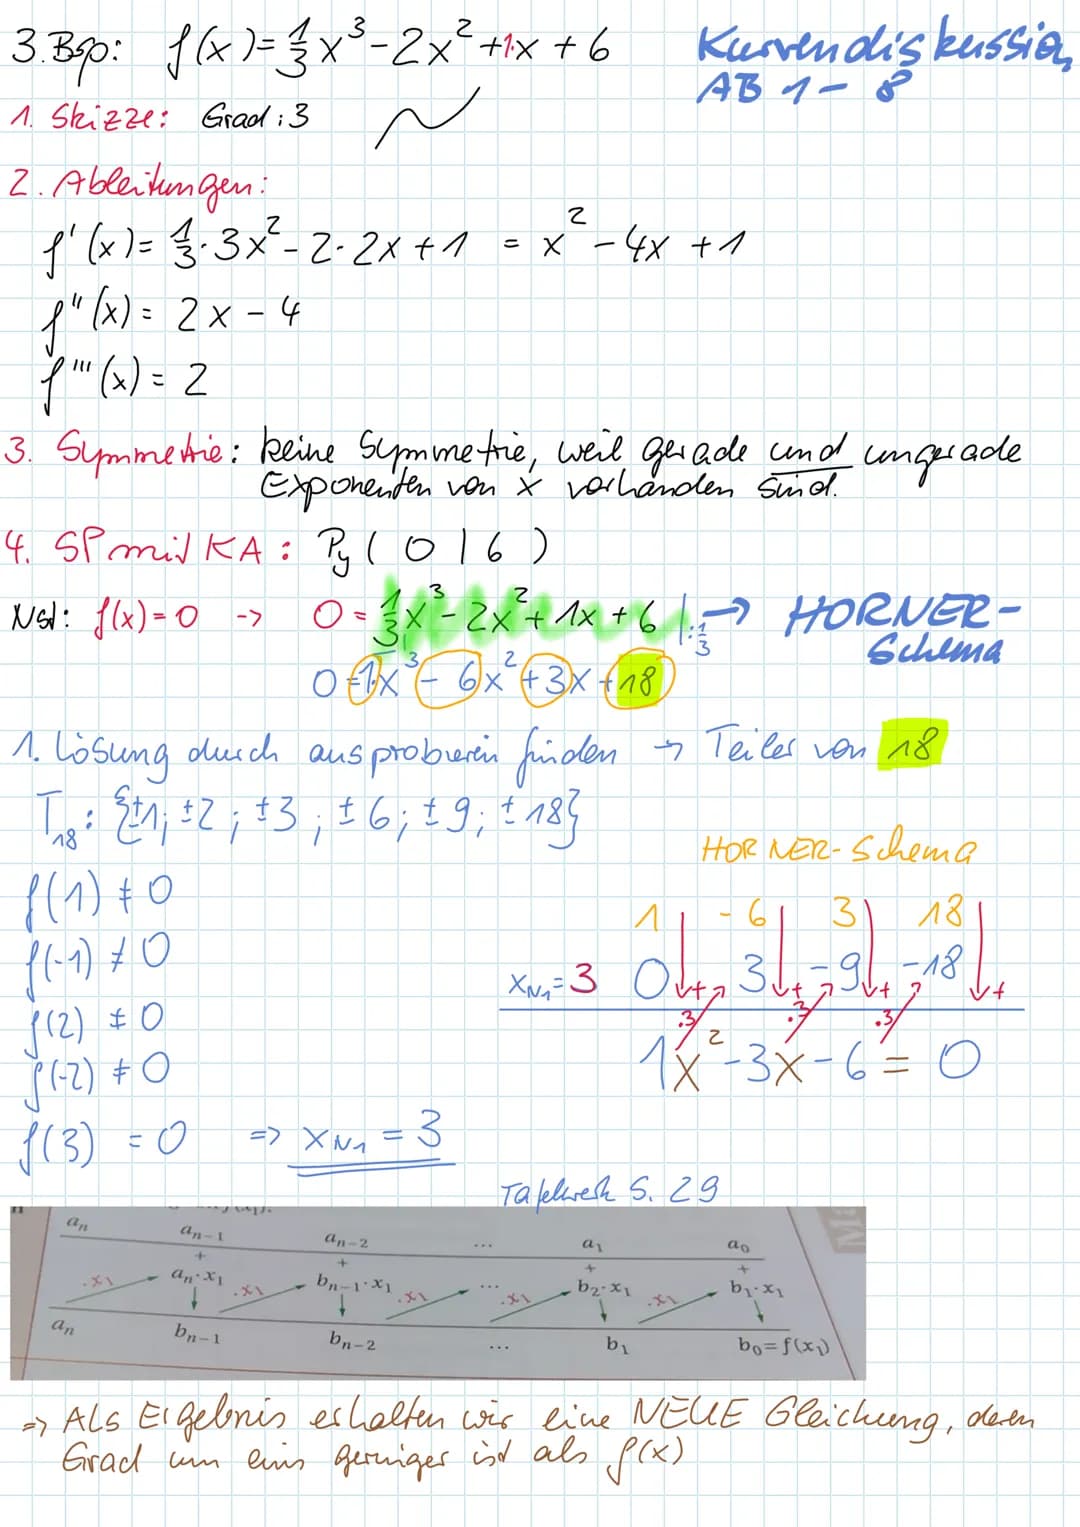 3. Bsp: f(x)= 1/3 x³ - 2x² + 1·x + 6
Kurvendiskussion
AB 1 - 8
1. Skizze: Grad: 3
2. Ableitungen:
f'(x)= 1/3 · 3x² - 2 · 2x + 1 = x² - 4x + 1
f''(x) = 2x - 4
f'''(x) = 2
3. Symmetrie: keine Symmetrie, weil gerade und ungerade
Exponenten von x vorhanden sind.
4. SP mit KA: Py ( 0 | 6 )
Nst: f(x)= 0 -> 0 = 1/3 x³ - 2x² + 1x + 6 |: 1/3 → HORNER-
Schema
0 = 1x³ - 6x² + 3x + 18
1. Lösung durch ausprobieren finden → Teiler von 18
T₁₈: {±1; ±2; ±3; ±6; ±9; ±18}
HORNER-Schema
f(1) ≠ 0
f(-1) ≠ 0
f(2) ≠ 0
f(-2) ≠ 0
f(3) = 0 => xN1 = 3
1 -6 3 18
xN1 = 3 0 3 -9 -18
+ + + +
·3 ·3 ·3
1x² - 3x - 6 = 0
Tafelwerk S. 29
aₙ aₙ₋₁ aₙ₋₂ ... a₁ a₀
+ + + +
·x₁ aₙ·x₁ ·x₁ bₙ₋₁·x₁ ·x₁ ... ·x₁ b₂·x₁ ·x₁ b₁·x₁
aₙ bₙ₋₁ bₙ₋₂ ... b₁ b₀=f(x₁)
=> Als Ergebnis erhalten wir eine NEUE Gleichung, deren
Grad um eins geringer ist als f(x)